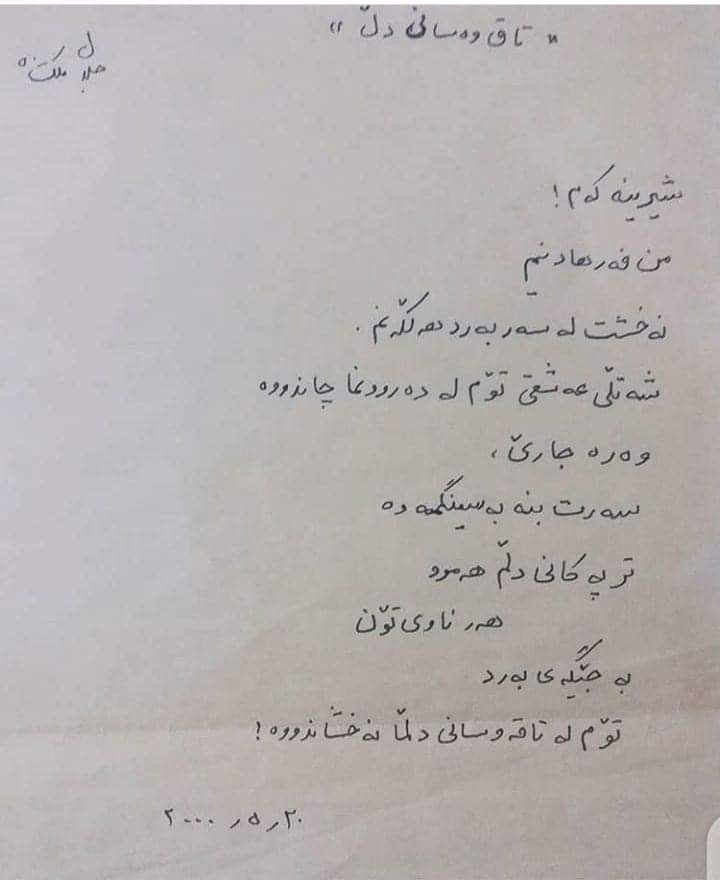 « تاق وەسانی دڵ »
شیرینەکەم!
من فەرهاد نیم
نەخشت لە سەر بەرد هەڵکەنم.
شەتڵی عەشقی تۆم لە دەروونما چاندووە
وەرە جارێ،
سەرت بنە بە سینگمەدە
ترپەکانی دڵم هەموو
هەر ناوی تۆن
بە جێگەی بەرد
تۆم لە تاقەوسانی دڵما نەخشاندووە!
٢٠٠٠ر٥ر٢٠